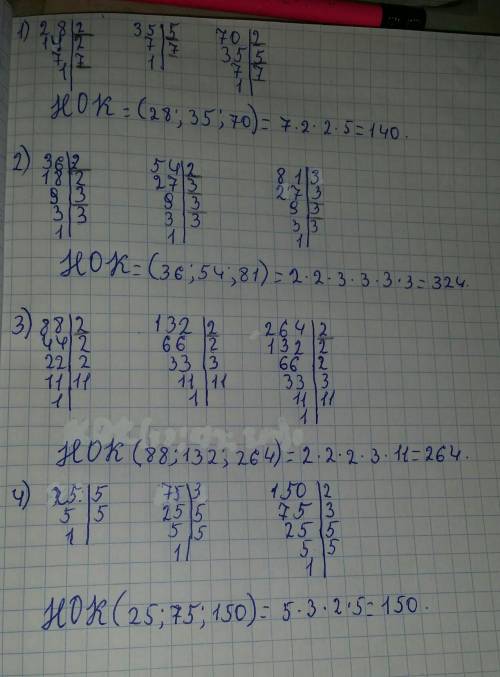 1) 28|2 35|5 70|2
14|2 7|7 35|5
7|7 1| 7|7
1| 1|
НОК = (28; 35; 70) = 7·2·2·5 = 140.
2) 36|2 54|2 81|3
18|2 27|3 27|3
9|3 9|3 9|3
3|3 3|3 3|3
1| 1| 1|
НОК = (36; 54; 81) = 2·2·3·3·3·3 = 324.
3) 88|2 132|2 264|2
44|2 66|2 132|2
22|2 33|3 66|2
11|11 11|11 33|3
1| 1| 11|11
1|
НОК (88; 132; 264) = 2·2·2·3·11 = 264.
4) 25|5 75|3 150|2
5|5 25|5 75|3
1| 5|5 25|5
1| 5|5
1|
НОК (25; 75; 150) = 5·3·2·5 = 150.